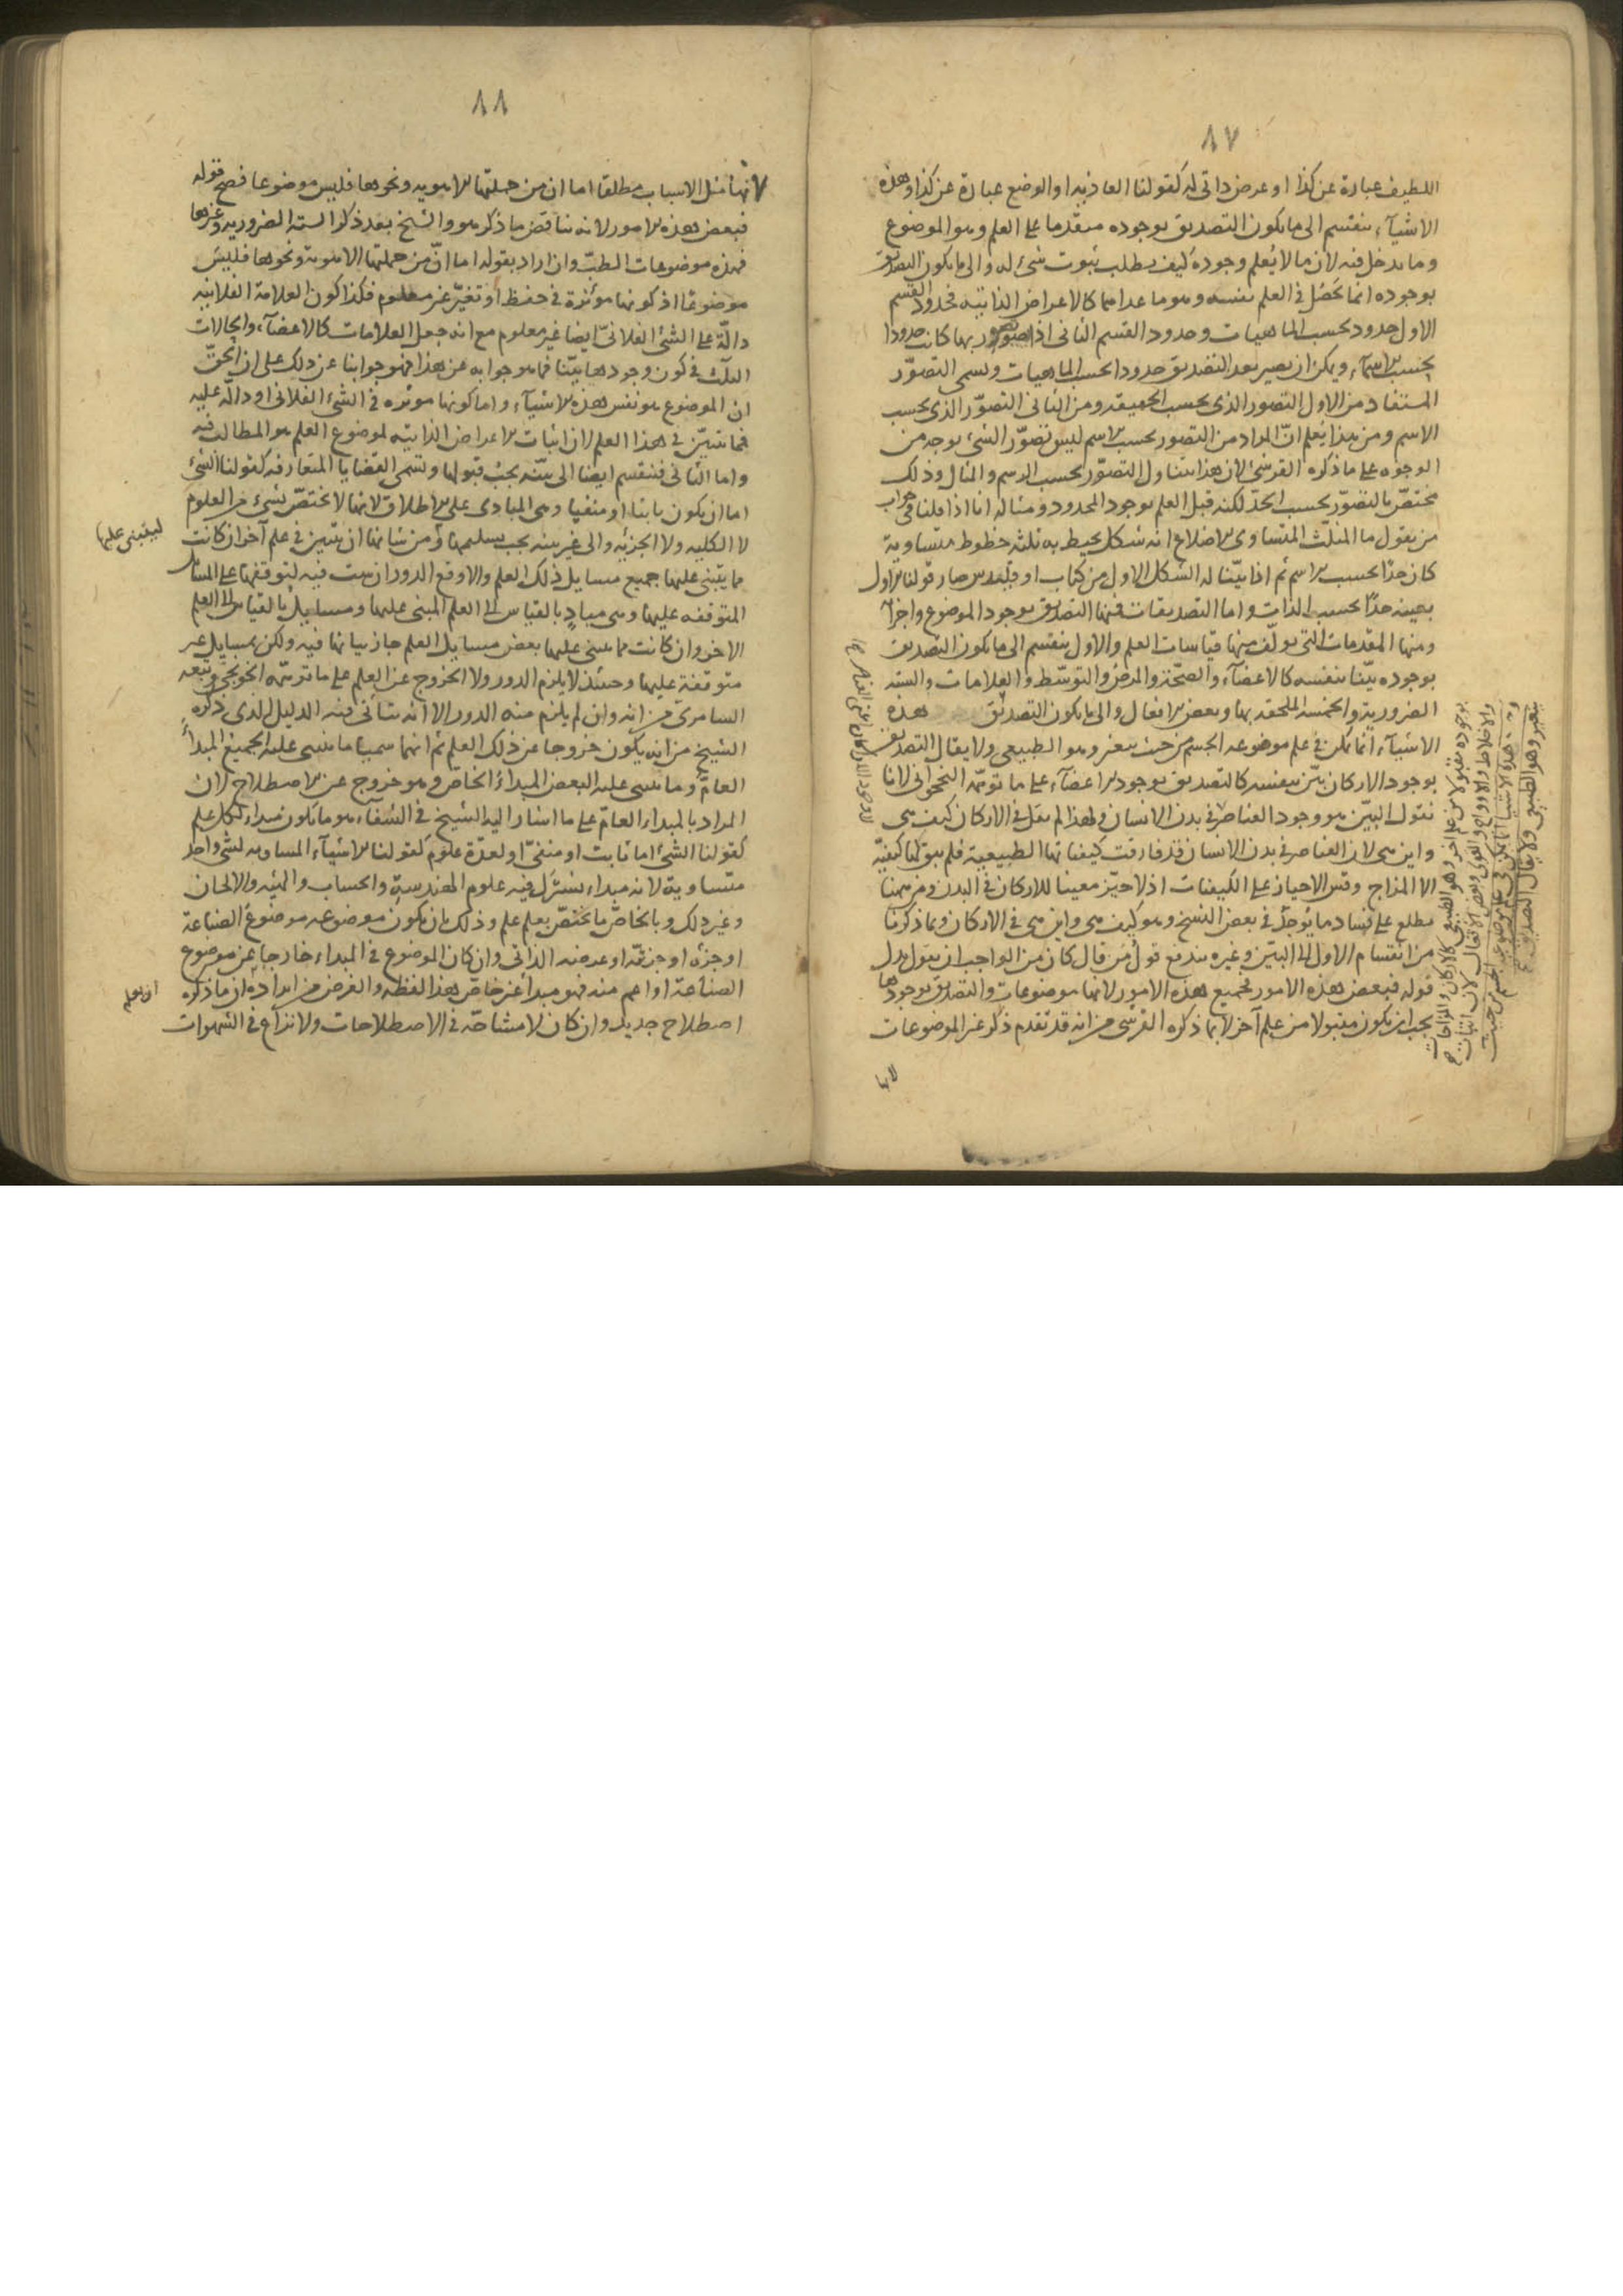 ٨٧
اللطيف عبارة عن كذا او عرض ذاتى له كقولنا العاذية او الوضع عبارة عن كذا وهذه
الاشيآء ينقسم الى ما يكون التصديق بوجوده متقدما على العلم وهو الموضوع
وما يدخل فيه لان ما لا يُعلم وجوده كيف يطلب ثبوت شئ له والى ما يكون التصديق
بوجوده انما يحصل فى العلم نفسه وهو ما عداهما كالاعراض الذاتية فحدود القسم
الاول حدود بحسب الماهيات وحدود القسم الثانى اذا صُوّر بها كانت حدودا
بحسب الاسمآء ويمكن ان يصير بعد التصديق حدودا بحسب الماهيات ويسمى التصوّر
المستفاد من الاول التصور الذى بحسب الحقيقه ومن الثانى التصوّر الذى بحسب
الاسم ومن هذا يُعلم انّ المراد من التصور بحسب الاسم ليس تصوّر الشئ بوجه من
الوجوه على ما ذكره القرشى لان هذا يتناول التصوّر بحسب الرسم والمثال وذلك
مختصّ بالتصوّر بحسب الحدّ لكنه قبل العلم بوجود المحدود ومثاله انا اذا قلنا فى جواب
من يقول ما المثلّث المتساوى الاضلاع انه شكل يحيط به ثلثة خطوط متساوية
كان حدّا بحسب الاسم ثم اذا بيّنّا له الشكل الاول من كتاب اوقليدس صار قولنا الاول
بعينه حدّا بحسب الذات واما التصديقات فمنها التصديق بوجود الموضوع واجزائه
ومنها المقدمات التى يولّف منها قياسات العلم والاول ينقسم الى ما يكون التصديق
بوجوده بيّنا بنفسه كالاعضآء والصحّة والمرض والتوسّط والعلامات والسته
الضرورية والخمسة الملحقه بها وبعض الافعال والى ما يكون التصديق هذه
الاشيآء انما يكون فى علم موضوعه الجسم من حيث يتغير وهو الطبيعى ولا يقال التصديق
بوجود الاركان بيّن بنفسه كالتصديق بوجود الاعضآء على ما توهّمه النخجوانى لانا
نقول البيّن هو وجود العناصر فى بدن الانسان ولهذا لم يقل فى الاركان كيف هى
واين هى لان العناصر فى بدن الانسان قد فارقت كيفياتها الطبيعية فلم يبق لها كيفيّة
الا المزاج وقس الاحياز على الكيفيات اذ لا حيّز معينا للاركان فى البدن ومن ههنا
يطلع على فساد ما يُوجد فى بعض النسخ وهو كيف هى واين هى فى الاركان وبما ذكرنا
من انقسام الاول الى البيّن وغيره يندفع قول من قال كان من الواجب ان يقول بدل
قوله فبعض هذه الامور فجميع هذه الامور لانها موضوعات والتصديق بوجودها
يجب ان يكون مقبولا من علم آخر لا بما ذكره القرشى من انه قد تقدم ذكر غير الموضوعات
لانها
بوجوده مقبولا من علم اخر وهو الطبيعى كالاركان والمزاجات
والاخلاط والارواح والقوى وبعض الافعال لان اثبات
هذه الاشيا انما يكون فى علم موضوعه الجسم من حيث
يتغير وهو الطبيعى ولا يقال التصديق
٨٨
لانها مثل الاسباب مطلقا اما ان من جملتها الاهوية ونحوها فليس موضوعا فصح قوله
فبعض هذه الامور لانه يناقض ما ذكر هو والشيخ بعد ذكر الستة الضرورية وغيرها
فهذه موضوعات الطبّ وان اراد بقوله اما انّ من جملتها الاهوية ونحوها فليس
موضوعًا اذ كونها مؤثرة فى حفظ او تغيّر غير معلوم فكذا كون العلامة الفلانيه
دالّة على الشئ الفلانىّ ايضا غير معلوم مع انه جعل العلامات كالاعضآء والحالات
الثلث فى كون وجودها بيّنا فما هو جوابه عن هذا فهو جوابنا عن ذلك على ان الحقّ
ان الموضوع هو نفس هذه الاشيآء واما كونها مؤثره فى الشئ الفلانى او دالّة عليه
فما يتبيّن فى هذا العلم لان اثبات الاعراض الذاتيّه لموضوع العلم هو المطالب فيه
واما الثانى فينقسم ايضا الى بيّنه يجب قبولها وتسمى القضايا المتعارفه كقولنا الشئ
اما ان يكون ثابتا او منفيا وهى المبادى على الاطلاق لانها لا تختصّ بشئ من العلوم
لا الكلية ولا الجزئيه والى غير بينه يجب تسليمها ومن شانها ان يتبيّن فى علم آخر ان كانت
مما يبتنى عليها جميع مسايل ذلك العلم والا وقع الدور ان بينت فيه لتوقفها على المسايل
المتوقفه عليها وهى مبادٍ بالقياس الى العلم المبنى عليها ومسايل بالقياس الى العلم
الاخر وان كانت مما يبتنى عليها بعض مسايل العلم جاز بيانها فيه ولكن بمسايل غير
متوقفة عليها وحينئذ لا يلزم الدور ولا الخروج عن العلم على ما توهّمه الخونجى وتبعه
السامرىّ من انه وان لم يلزم منه الدور الا انه يتأتى فيه الدليل الذى ذكره
الشيخ من انه يكون خروجا عن ذلك العلم ثم انهما سميا ما يبتنى عليه الجميع المبدأ
العامّ وما يبتنى عليه البعض المبدأ الخاصّ وهو خروج عن الاصطلاح لان
المراد بالمبداء العامّ على ما اشار اليه الشيخ فى الشفآء هو ما يكون مبداء لكل علم
كقولنا الشئ اما ثابت او منفىّ او لعدّة علوم كقولنا الاشيآء المساويه لشئ واحد
متساوية لانه مبداء يشترك فيه علوم الهندسة والحساب والهيئه والالحان
وغير ذلك وبالخاصّ ما يختصّ بعلم علم وذلك بان يكون موضوعه موضوع الصناعة
او جزؤه او جزئيّه او عرضه الذاتى وان كان الموضوع فى المبداء خارجا عن موضوع
الصناعة او اعم منه فهو مبدأ غير خاصّ هذا لفظه والغرض من ايراده ان ما ذكره
اصطلاح جديد وان كان لا مشاحّه فى الاصطلاحات ولا نزاع فى الشهوات
ليبتنى عليها
ان يعلم